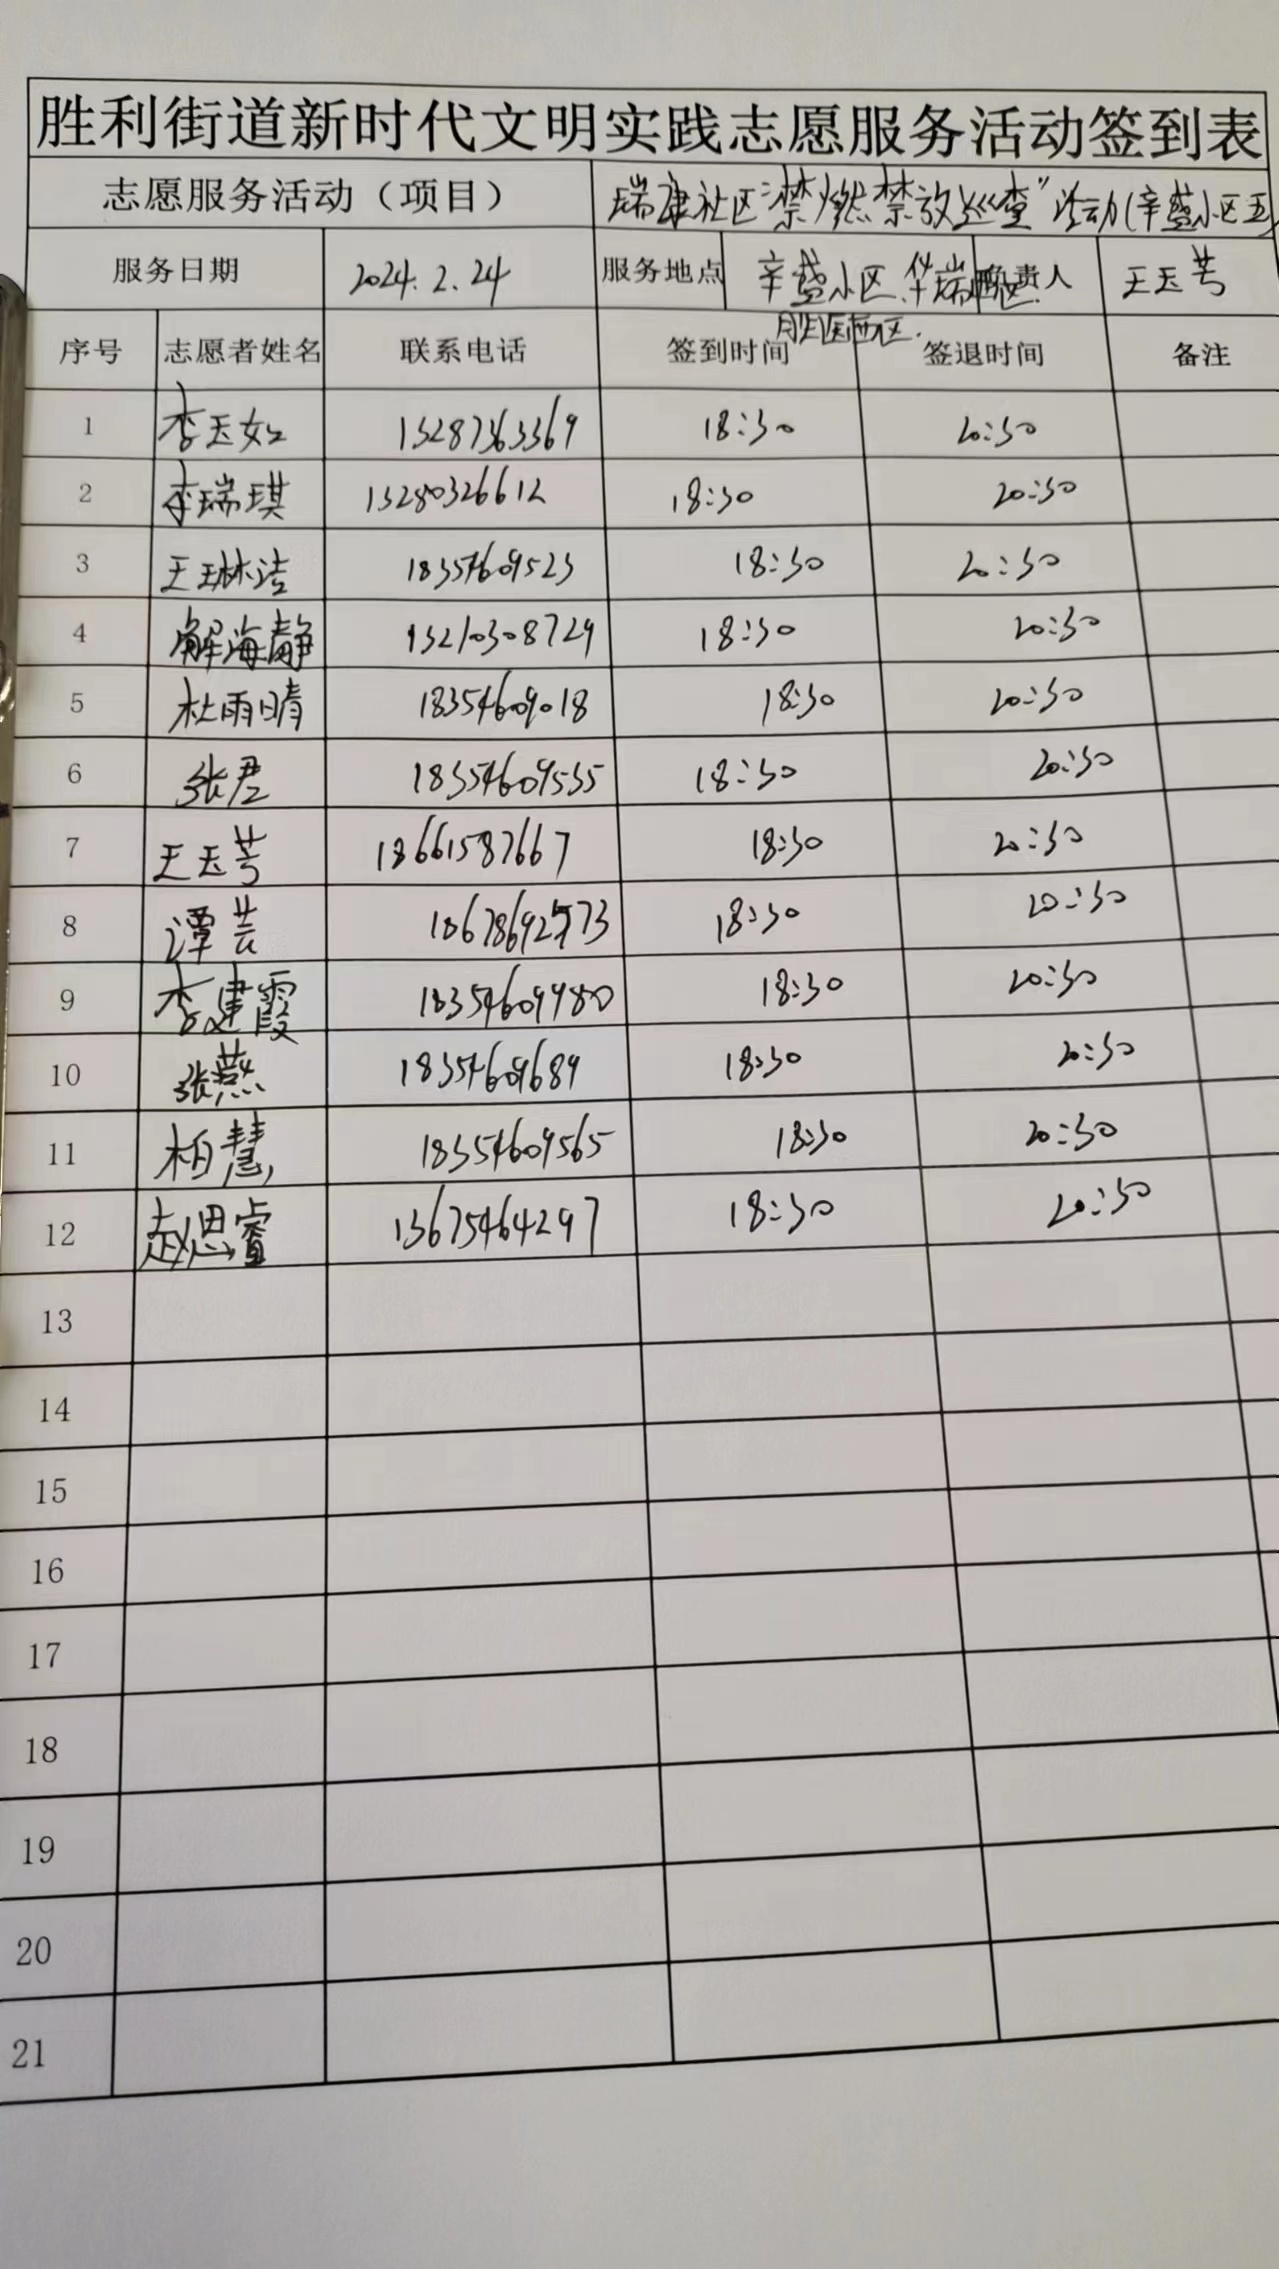 胜利街道新时代文明实践志愿服务活动签到表
志愿服务活动（项目） 瑞康社区“禁燃禁放巡查”活动(辛盛小区五)
服务日期 2024.2.24 服务地点 辛盛小区.华瑞 负责人 王玉芳
胜医西区.
序号 志愿者姓名 联系电话 签到时间 签退时间 备注
1 李玉如 13287363369 18:30 20:30
2 李瑞琪 13280326612 18:30 20:30
3 王琳洁 18354609523 18:30 20:30
4 解海静 13210308729 18:30 20:30
5 杜雨晴 18354609018 18:30 20:30
6 张君 18354609535 18:30 20:30
7 王玉芳 18661587667 18:30 20:30
8 谭芸 18:30 20:30
9 李建霞 18354609980 18:30 20:30
10 张燕 18354609689 18:30 20:30
11 柏慧 18354609565 18:30 20:30
12 赵思睿 13675464297 18:30 20:30
13
14
15
16
17
18
19
20
21